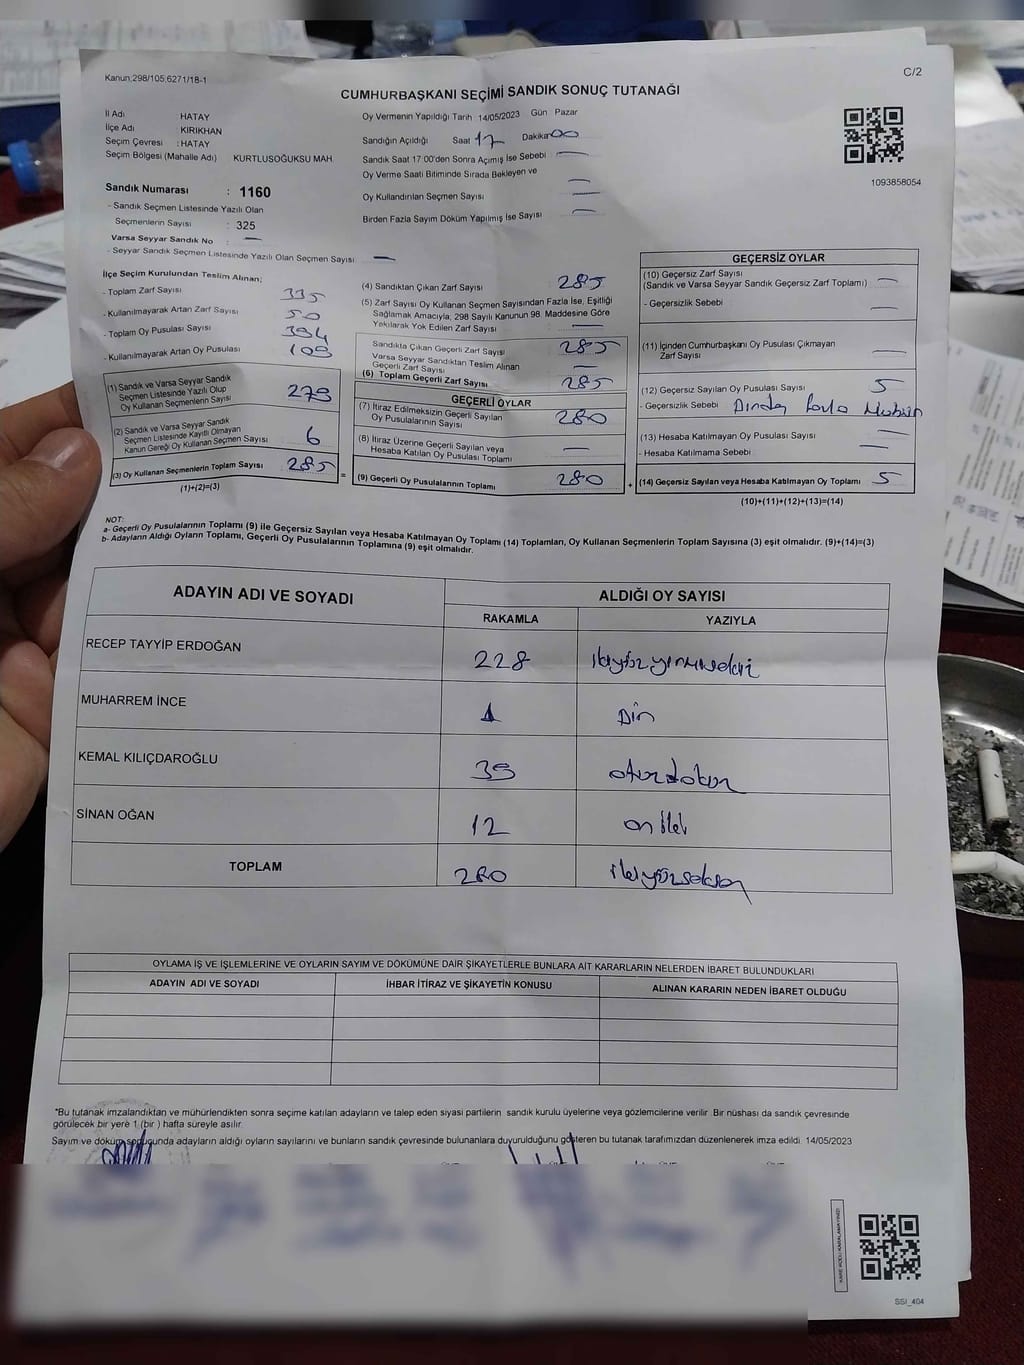 Kanun;298/105;6271/18-1
C/2
CUMHURBAŞKANI SEÇİMİ SANDIK SONUÇ TUTANAĞI
İl Adı HATAY
İlçe Adı KIRIKHAN
Seçim Çevresi : HATAY
Seçim Bölgesi (Mahalle Adı) KURTLUSOĞUKSU MAH.
Sandık Numarası : 1160
- Sandık Seçmen Listesinde Yazılı Olan
Seçmenlerin Sayısı : 325
Varsa Seyyar Sandık No : —
- Seyyar Sandık Seçmen Listesinde Yazılı Olan Seçmen Sayısı —
Oy Vermenin Yapıldığı Tarih 14/05/2023 Gün Pazar
Sandığın Açıldığı Saat 17 Dakika 00
Sandık Saat 17:00'den Sonra Açımış İse Sebebi —
Oy Verme Saati Bitiminde Sırada Bekleyen ve —
Oy Kullandırılan Seçmen Sayısı —
Birden Fazla Sayım Döküm Yapılmış İse Sayısı —
1093858054
İlçe Seçim Kurulundan Teslim Alınan;
- Toplam Zarf Sayısı 335
- Kullanılmayarak Artan Zarf Sayısı 50
- Toplam Oy Pusulası Sayısı 394
- Kullanılmayarak Artan Oy Pusulası 109
(1) Sandık ve Varsa Seyyar Sandık
Seçmen Listesinde Yazılı Olup
Oy Kullanan Seçmenlerin Sayısı 279
(2) Sandık ve Varsa Seyyar Sandık
Seçmen Listesinde Kayıtlı Olmayan
Kanun Gereği Oy Kullanan Seçmen Sayısı 6
(3) Oy Kullanan Seçmenlerin Toplam Sayısı 285
(1)+(2)=(3)
(4) Sandıktan Çıkan Zarf Sayısı 285
(5) Zarf Sayısı Oy Kullanan Seçmen Sayısından Fazla İse, Eşitliği
Sağlamak Amacıyla, 298 Sayılı Kanunun 98. Maddesine Göre
Yakılarak Yok Edilen Zarf Sayısı —
Sandıkta Çıkan Geçerli Zarf Sayısı 285
Varsa Seyyar Sandıktan Teslim Alınan
Geçerli Zarf Sayısı —
(6) Toplam Geçerli Zarf Sayısı 285
GEÇERLİ OYLAR
(7) İtiraz Edilmeksizin Geçerli Sayılan
Oy Pusulalarının Sayısı 280
(8) İtiraz Üzerine Geçerli Sayılan veya
Hesaba Katılan Oy Pusulası Toplamı —
= (9) Geçerli Oy Pusulalarının Toplamı 280
GEÇERSİZ OYLAR
(10) Geçersiz Zarf Sayısı
(Sandık ve Varsa Seyyar Sandık Geçersiz Zarf Toplamı) —
- Geçersizlik Sebebi —
(11) İçinden Cumhurbaşkanı Oy Pusulası Çıkmayan
Zarf Sayısı —
(12) Geçersiz Sayılan Oy Pusulası Sayısı 5
- Geçersizlik Sebebi Birden Fazla Mühür
(13) Hesaba Katılmayan Oy Pusulası Sayısı —
- Hesaba Katılmama Sebebi —
+ (14) Geçersiz Sayılan veya Hesaba Katılmayan Oy Toplamı 5
(10)+(11)+(12)+(13)=(14)
NOT:
a- Geçerli Oy Pusulalarının Toplamı (9) ile Geçersiz Sayılan veya Hesaba Katılmayan Oy Toplamı (14) Toplamları, Oy Kullanan Seçmenlerin Toplam Sayısına (3) eşit olmalıdır. (9)+(14)=(3)
b- Adayların Aldığı Oyların Toplamı, Geçerli Oy Pusulalarının Toplamına (9) eşit olmalıdır.
ADAYIN ADI VE SOYADI ALDIĞI OY SAYISI
RAKAMLA YAZIYLA
RECEP TAYYİP ERDOĞAN 228 ikiyüzyirmisekiz
MUHARREM İNCE 1 Bir
KEMAL KILIÇDAROĞLU 39 otuzdokuz
SİNAN OĞAN 12 on iki
TOPLAM 280 ikiyüzseksen
OYLAMA İŞ VE İŞLEMLERİNE VE OYLARIN SAYIM VE DÖKÜMÜNE DAİR ŞİKAYETLERLE BUNLARA AİT KARARLARIN NELERDEN İBARET BULUNDUKLARI
ADAYIN ADI VE SOYADI İHBAR İTİRAZ VE ŞİKAYETİN KONUSU ALINAN KARARIN NEDEN İBARET OLDUĞU
*Bu tutanak imzalandıktan ve mühürlendikten sonra seçime katılan adayların ve talep eden siyasi partilerin sandık kurulu üyelerine veya gözlemcilerine verilir. Bir nüshası da sandık çevresinde
görülecek bir yere 1 (bir ) hafta süreyle asılır.
Sayım ve döküm sonucunda adayların aldığı oyların sayılarını ve bunların sandık çevresinde bulunanlara duyurulduğunu gösteren bu tutanak tarafımızdan düzenlenerek imza edildi. 14/05/2023
KARE KODU KARALAMAYINIZ!
SSI_404